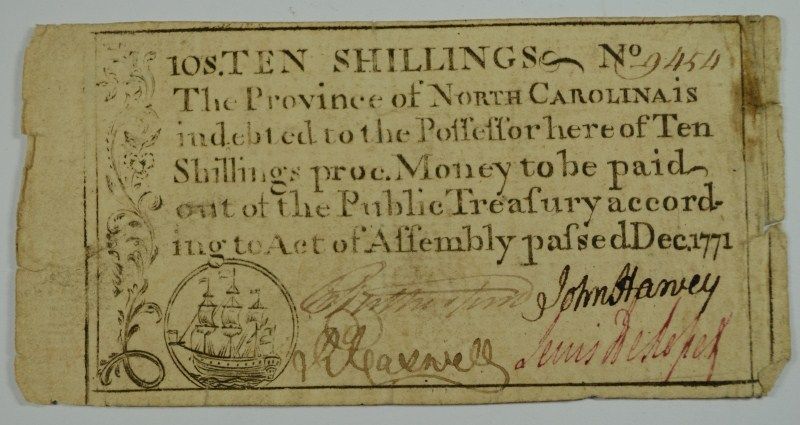 10S. TEN SHILLINGS No 9454
The Province of NORTH CAROLINA is
indebted to the Poſſeſſor here of Ten
Shillings proc. Money to be paid
out of the Public Treaſury accord-
ing to Act of Aſſembly paſsed Dec. 1771
John Harvey
R Caswell Lewis DeRosset